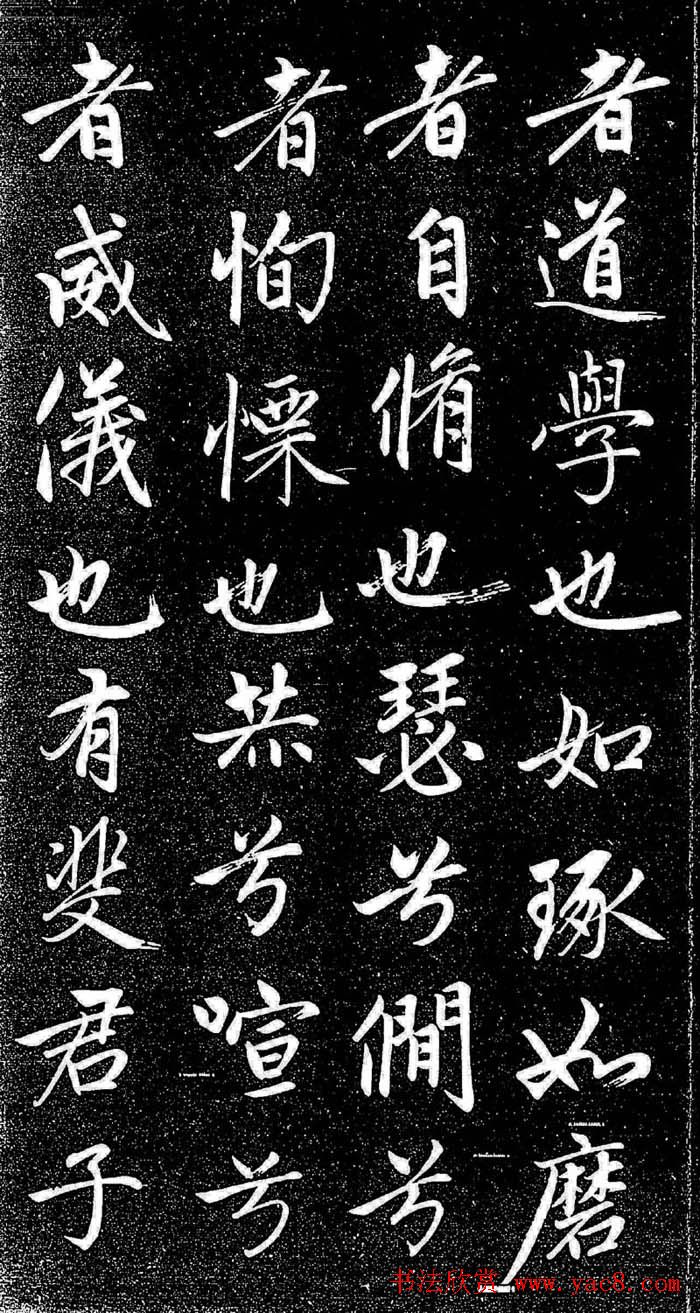 者道學也如琢如磨
者自脩也瑟兮僩兮
者恂慄也赫兮喧兮
者威儀也有斐君子
书法欣赏 www.yac8.com